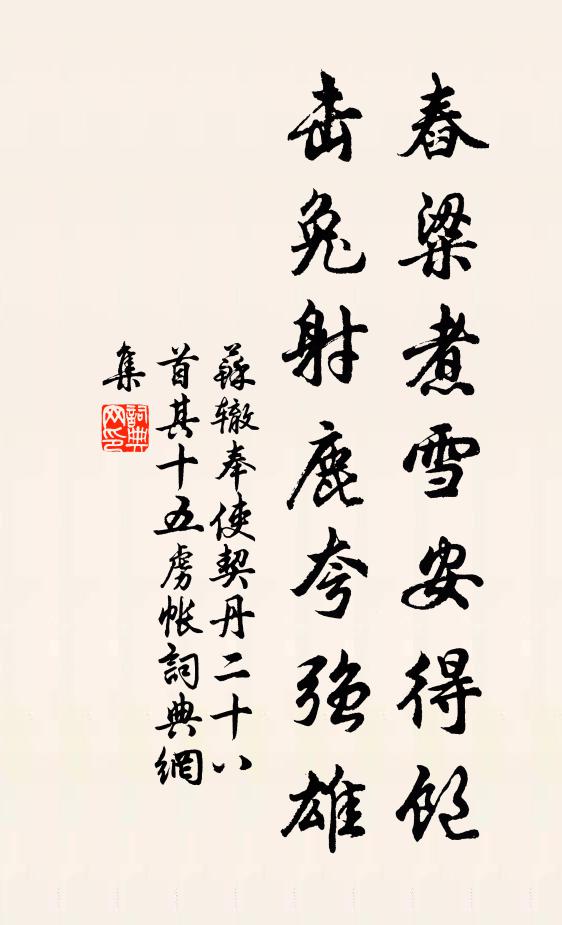 舂粱煮雪安得飽
击兔射鹿夸強雄
蘇辙奉使契丹二十八
首其十五虜帐詞典網
集
詞典网印